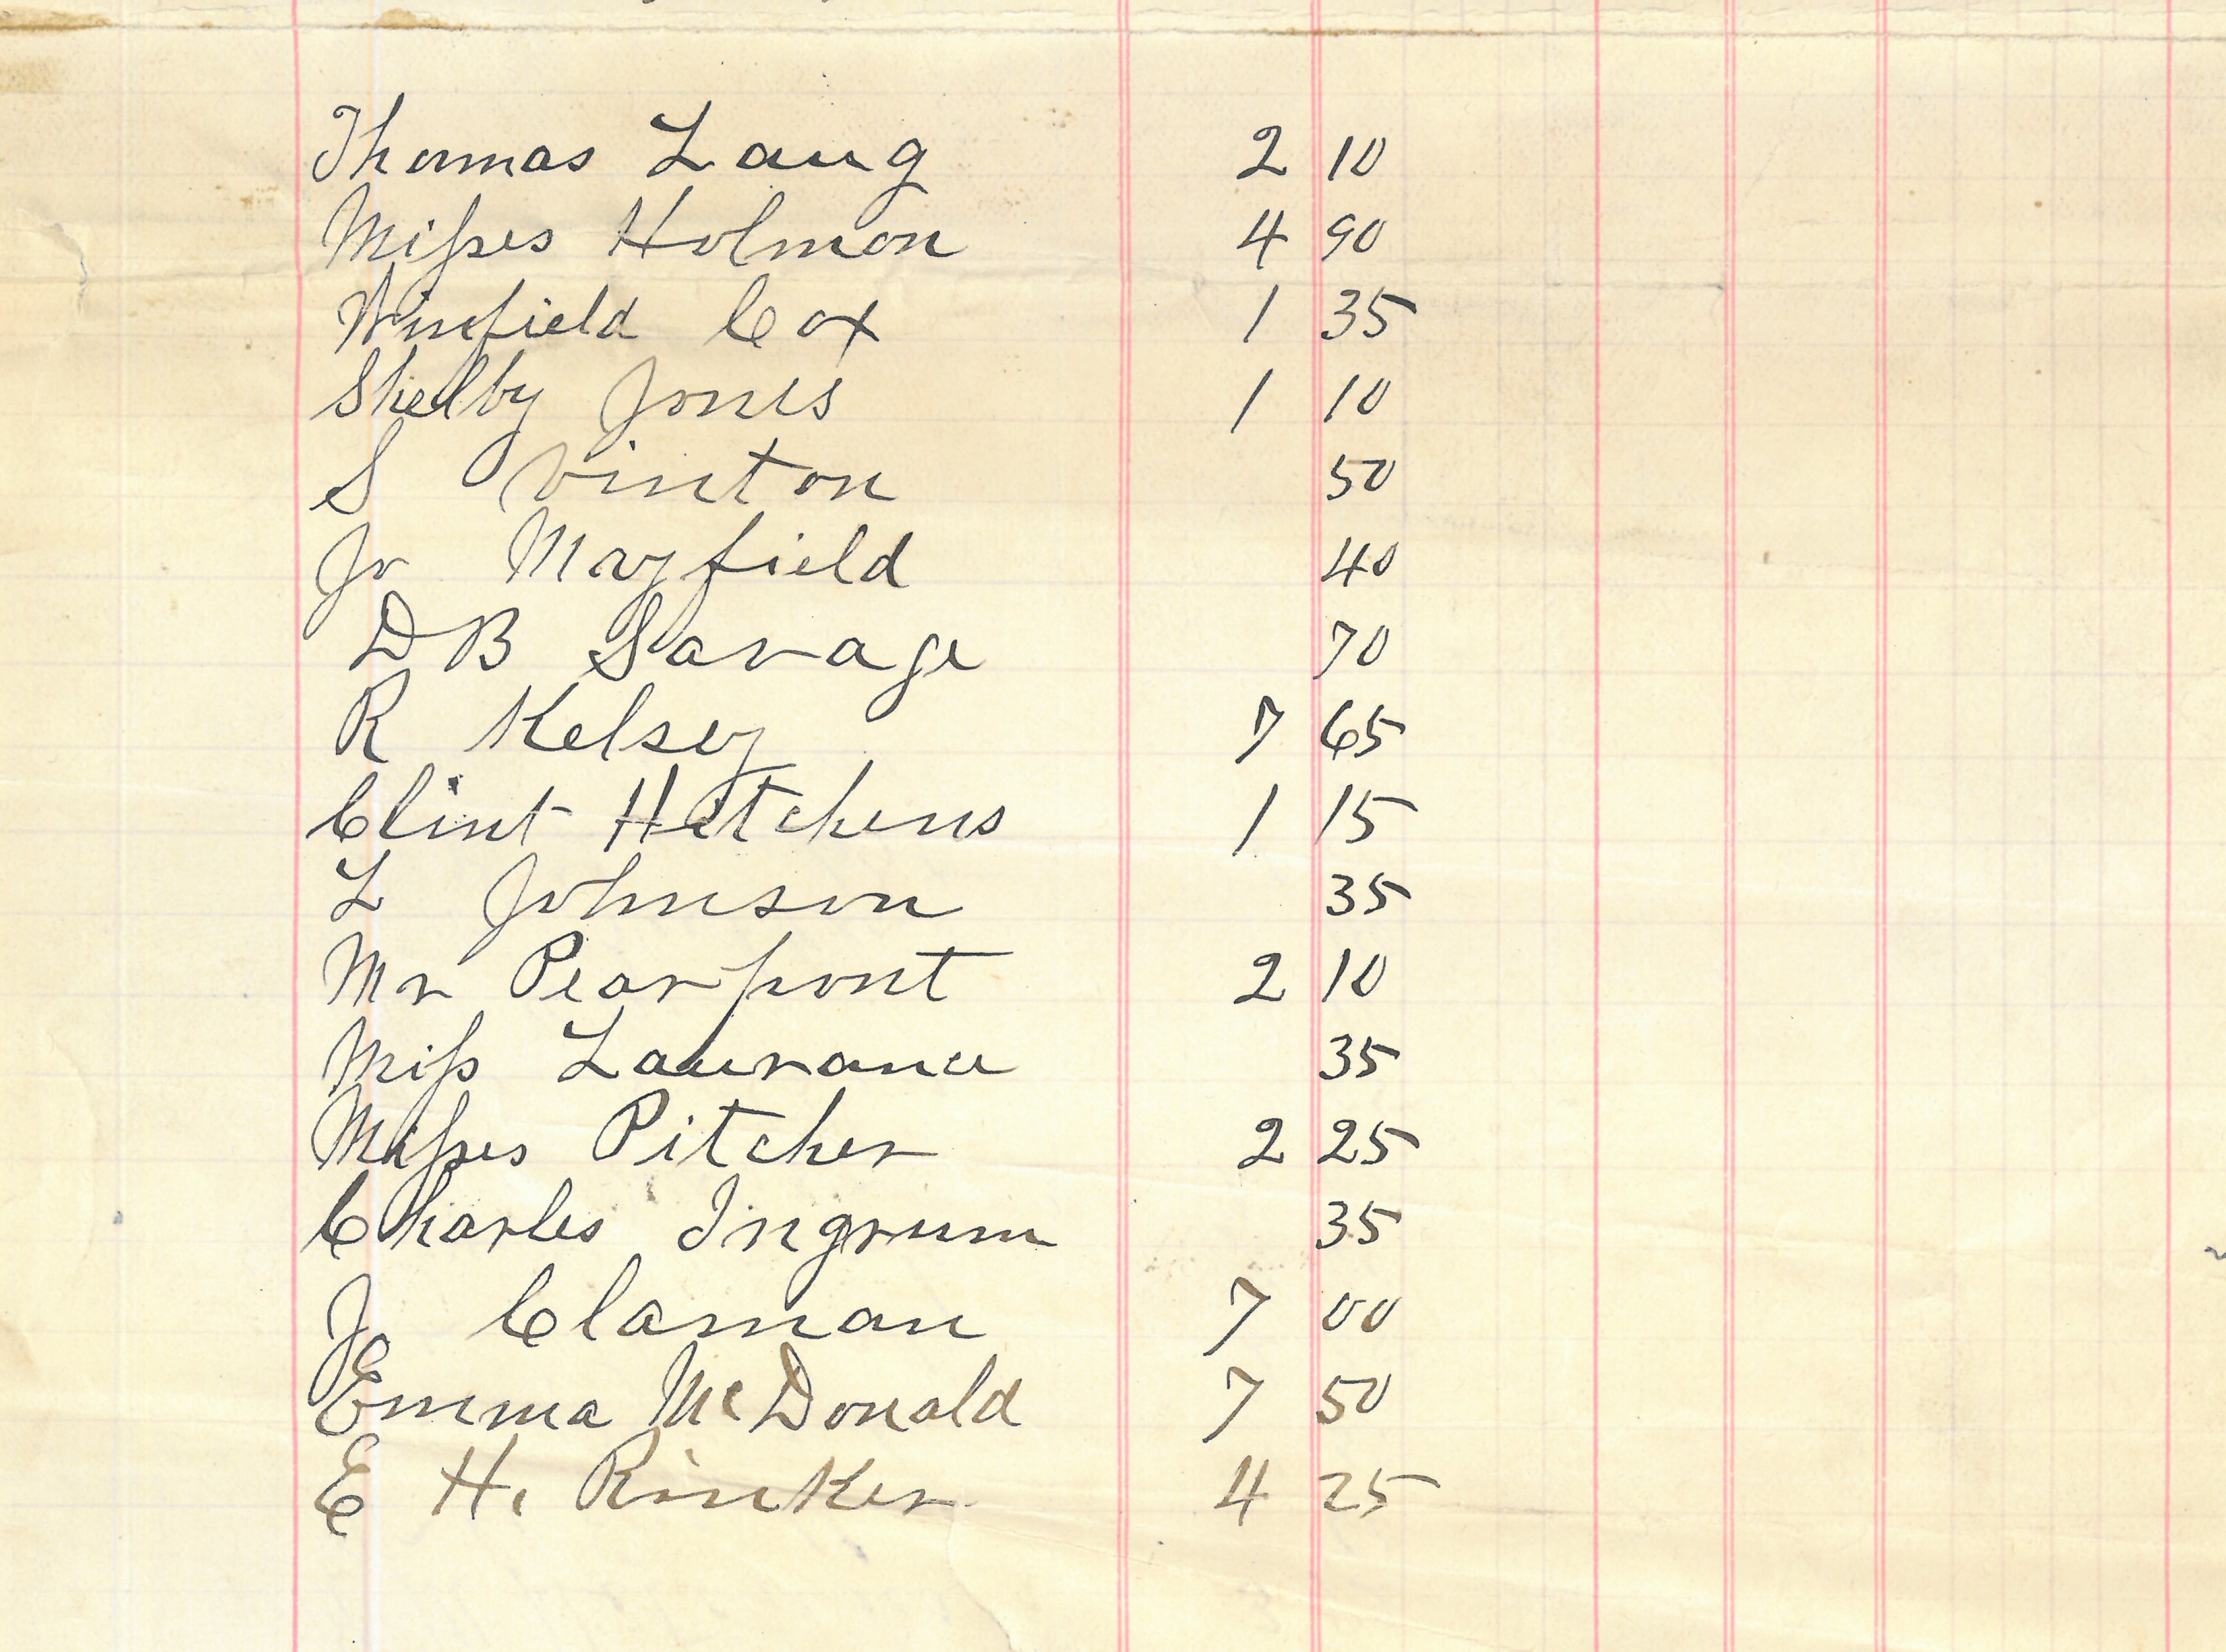 Thomas Laug 2 10
Misses Holmon 4 90
Winfield Cox 1 35
Shelby Jones 1 10
S Vinton 50
Jo Mayfield 40
D B Savage 70
R Kelsey 7 65
Clint Hatchens 1 15
L Johnson 35
Mr Pearpont 2 10
Miss Laurance 35
Misses Pitcher 2 25
Charles Ingrum 35
J Claman 7 00
Emma McDonald 7 50
E H. Rinker 4 25